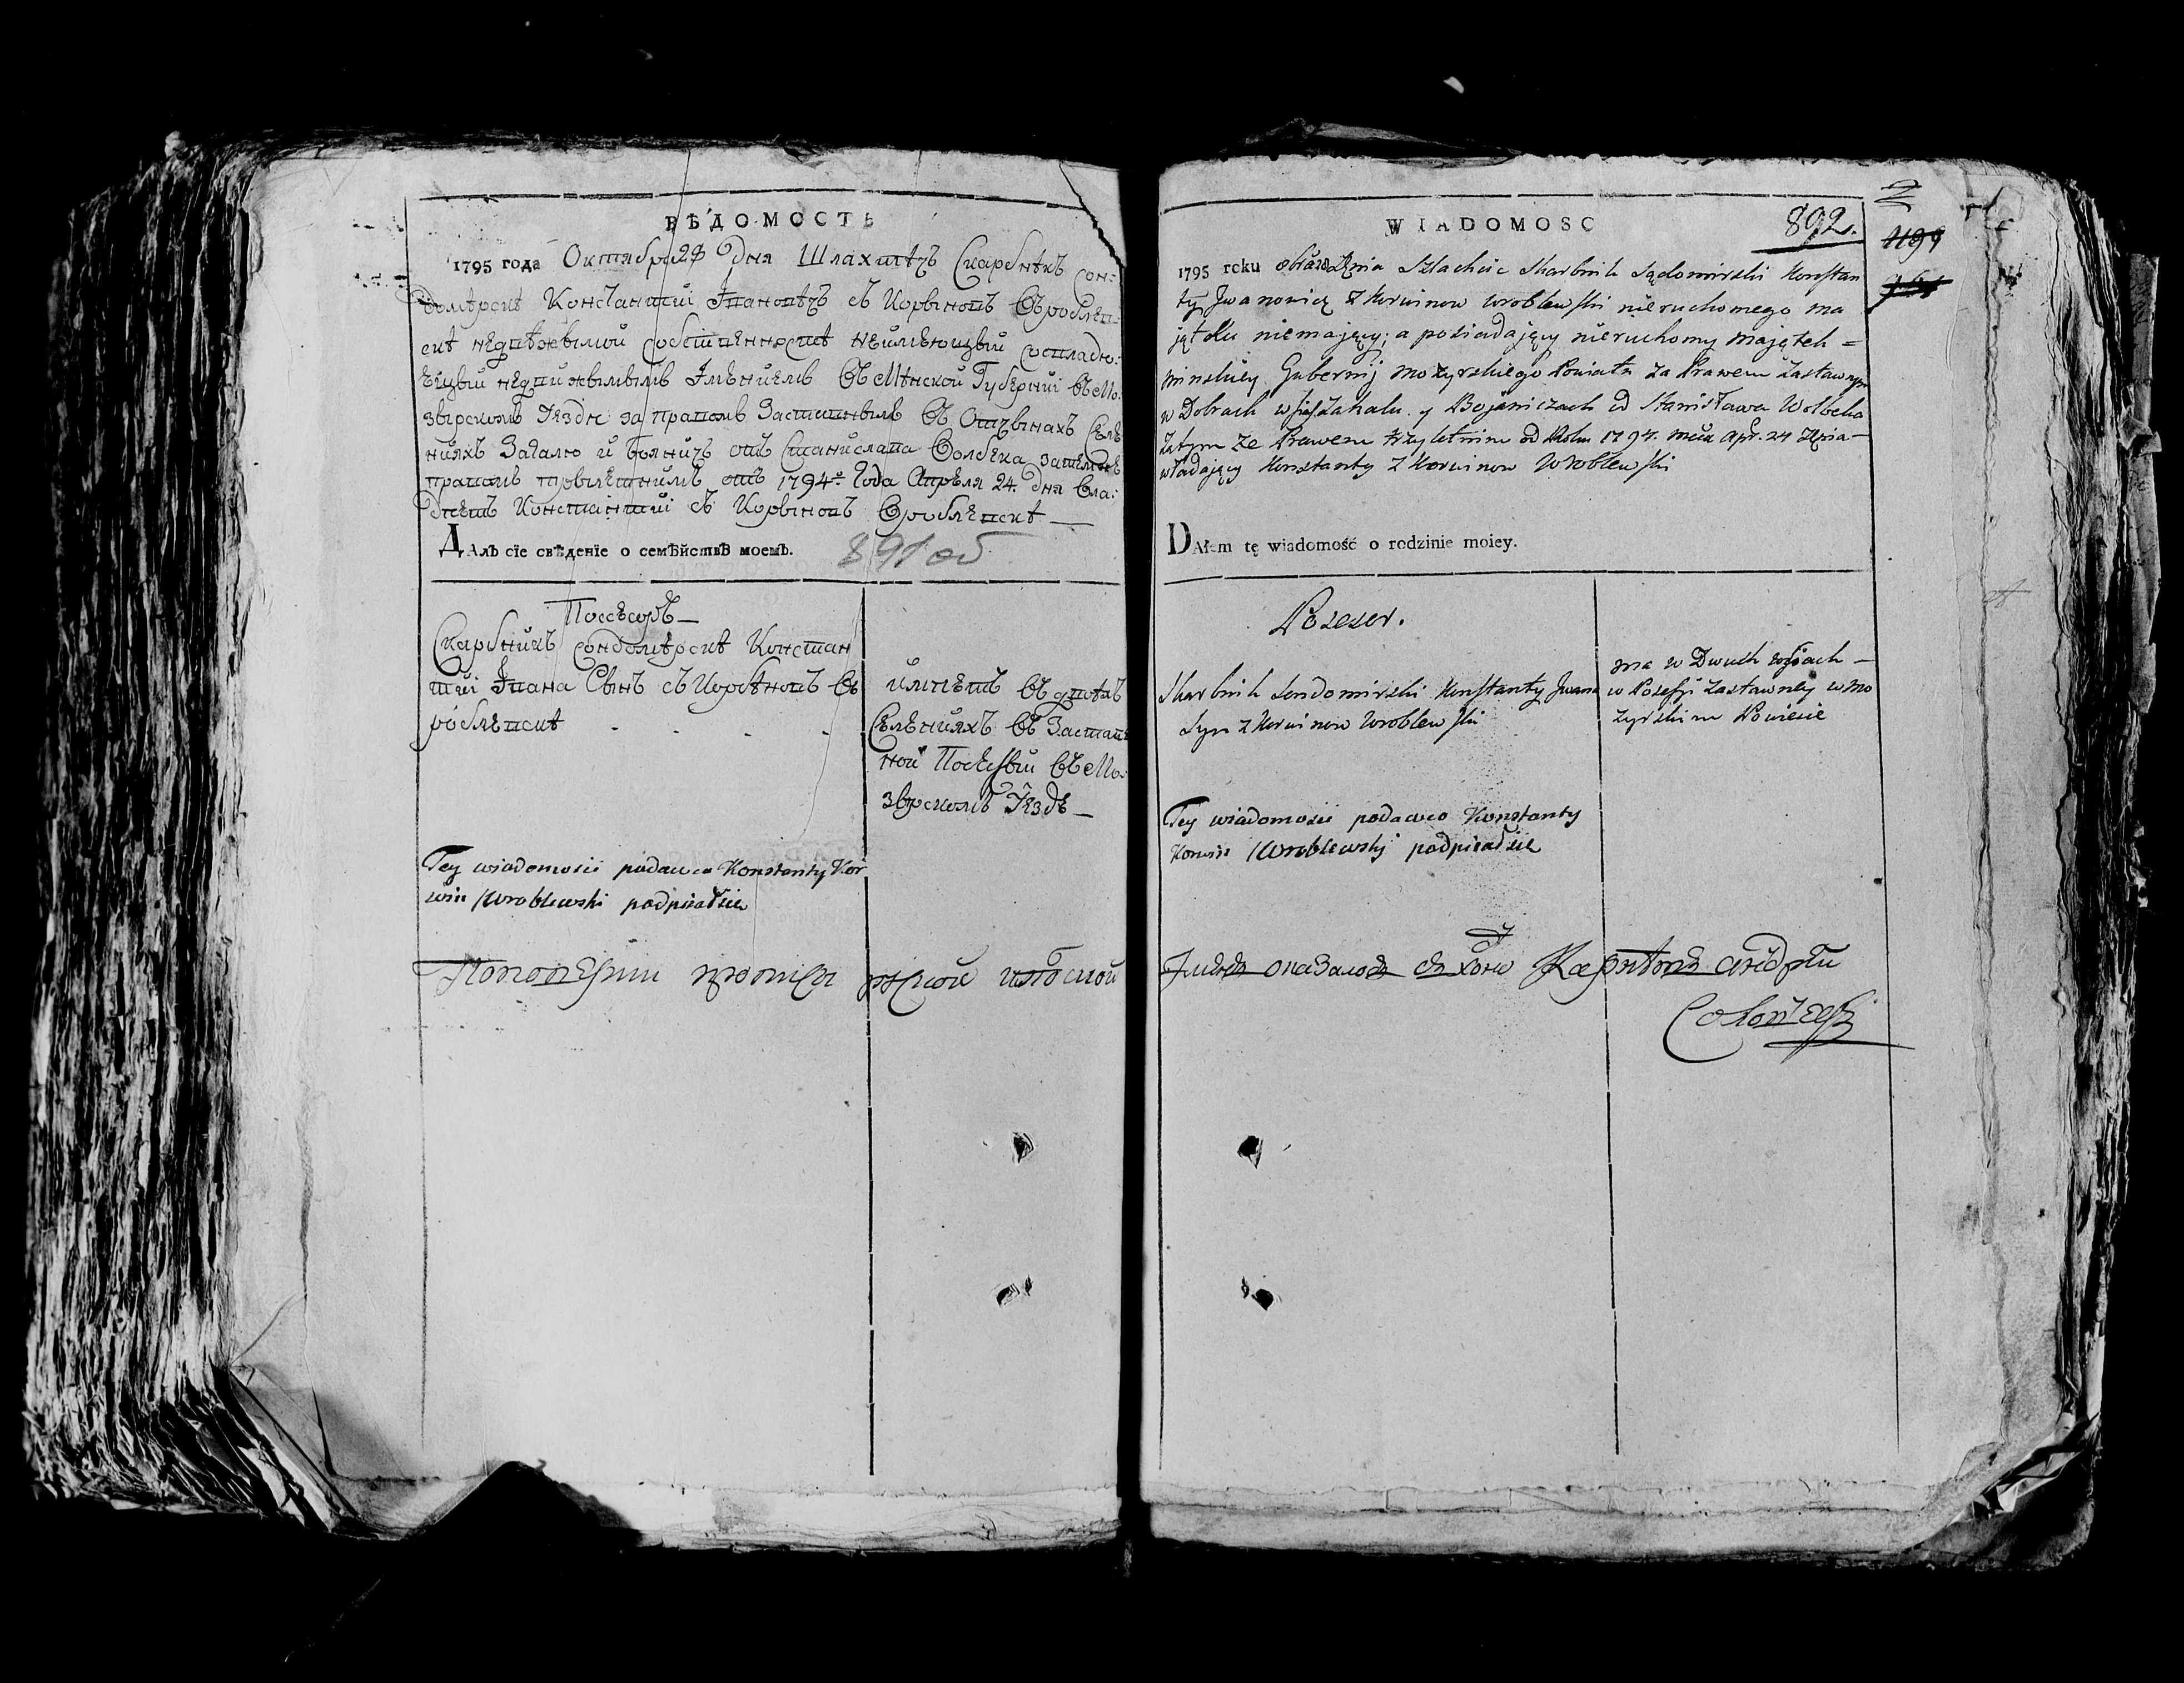 ВѢДОМОСТЬ
1795 года Октября дня Шляхтичъ Скарбникъ Сон-
домирски Константи Ивановичъ съ Корвиновъ Врoблев-
ски недвижимой собственности неимеющый совладю-
ещый недвижымымъ Имениемъ въ Минской Губернии въ Мо-
зырскомъ Уезде за правомъ Заставнымъ въ
нияхъ Загалю и Бояничъ отъ Станислава Волбека
правомъ трылетнимъ отъ 1794го Года Апреля 24. дня Вла-
деетъ Константи съ Корвиновъ Вроблевски
ДАлъ сїе свѣденїе о семѣйствѣ моемъ.
891 об
Посесоръ
Скарбникъ Сондомирски Констан
ти Ивана Сынъ съ Корвиновъ Въ
роблевски
имеетъ въ двохъ
Селенияхъ въ Застав
ной Посесыи въ Мо-
зырскомъ Уезде
Tey wiadomosci podawca Konstanty Kor
win Wroblewski podpisał sie
WIADOMOSC
892.
1199
1795 roku Szlachcic Skarbnik Sądomirski Konstan
ty Jwanowicz z Korwinow Wroblewski nieruchomego ma
jątku niemający; a posiadający nieruchomy majątek =
minskiey Gubernij mozyrskiego Powiatu za Prawem Zastawnym
w Dobrach Zahalu y Bojaniczach od Stanisława Wolbeka
Zatym ze Prawem trzyletnim od Roku 1794. Apr. 24 Dnia
władający Konstanty z Korwinow Wroblewski
DAłem tę wiadomość o rodzinie moiey.
Posesor.
Skarbnik Sendomirski Konstanty Jwana
Syn z Korwinow Wroblewski
ma w Dwuch wsiach
w Posesyi Zastawney w mo
zyrskim Powiecie
Tey wiadomosci podawca Konstanty
Korwin Wroblewskj podpisał sie